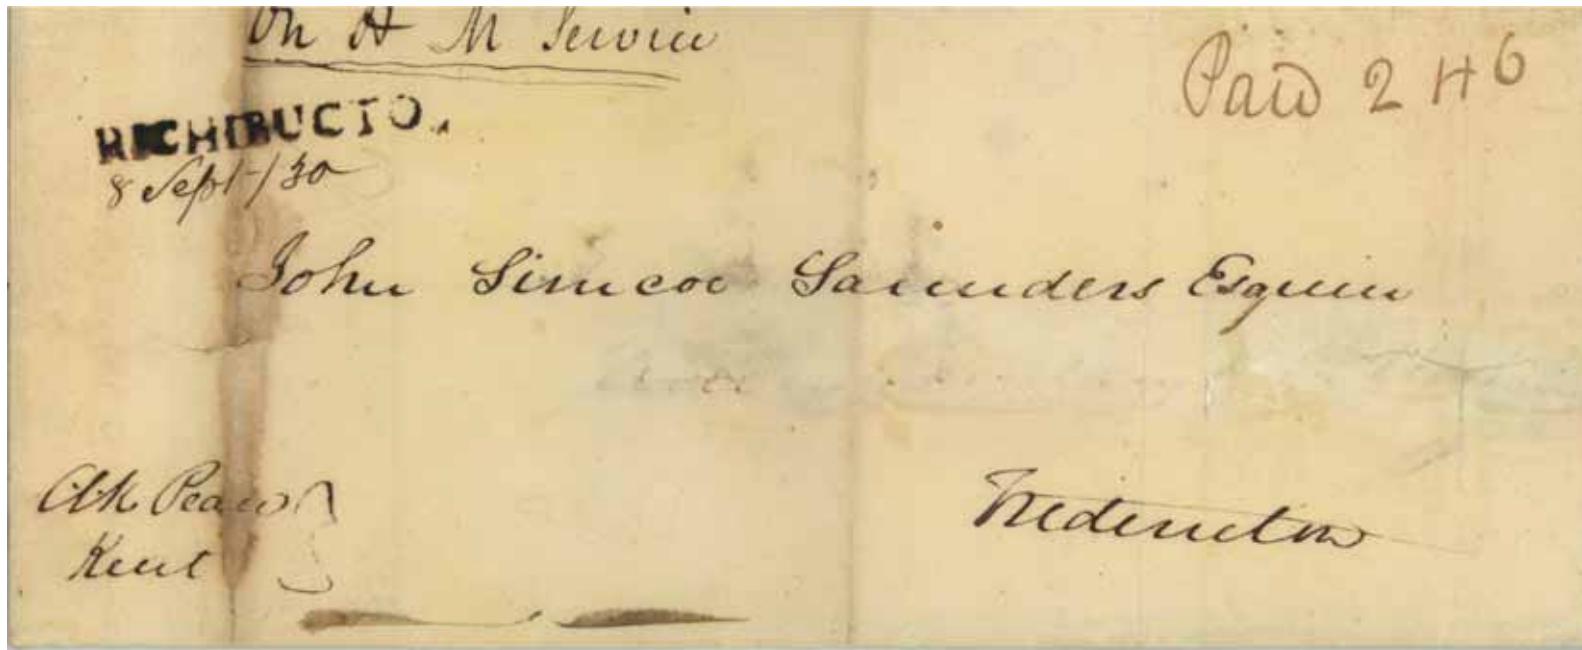 On H M Service
Paid 2 H 6
RICHIBUCTO.
8 Sept /30
John Simcoe Saunders Esquire
Clk Peace
Kent
Fredericton